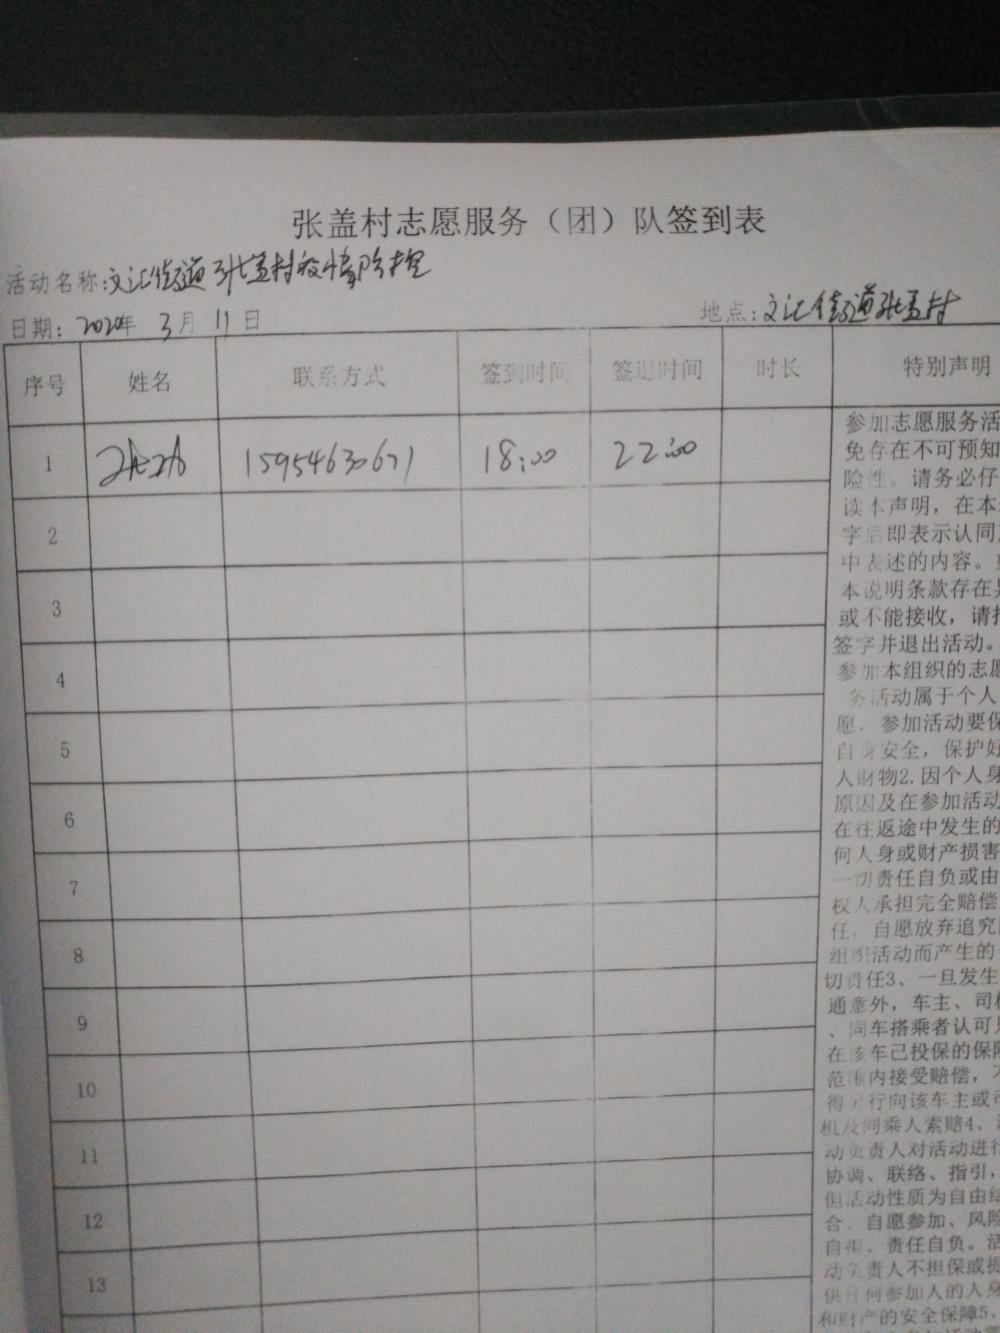 张盖村志愿服务（团）队签到表
活动名称:文汇街道张盖村疫情防控
日期: 2020年 3月 11日
地点:文汇街道张盖村
序号 姓名 联系方式 签到时间 签退时间 时长 特别声明
1 15954630671 18:00 22:00
2
3
4
5
6
7
8
9
10
11
12
13
参加志愿服务活
免存在不可预知
险性。请务必仔
读本声明，在本
字后即表示认同
中表述的内容。
本说明条款存在
或不能接收，请
签字并退出活动。
参加本组织的志愿
务活动属于个人
愿，参加活动要保
自身安全，保护好
人财物2.因个人身
原因及在参加活动
在往返途中发生的
何人身或财产损害
一切责任自负或由
权人承担完全赔偿
任。自愿放弃追究
组织活动而产生的
切责任3、一旦发生
通意外，车主、司
、同车搭乘者认可
在该车已投保的保险
范围内接受赔偿，
得另行向该车主或司
机及同乘人索赔4、
动负责人对活动进行
协调、联络、指引，
但活动性质为自由结
合、自愿参加、风险
自担、责任自负。活
动负责人不担保或提
供任何参加人的人身
和财产的安全保障5、